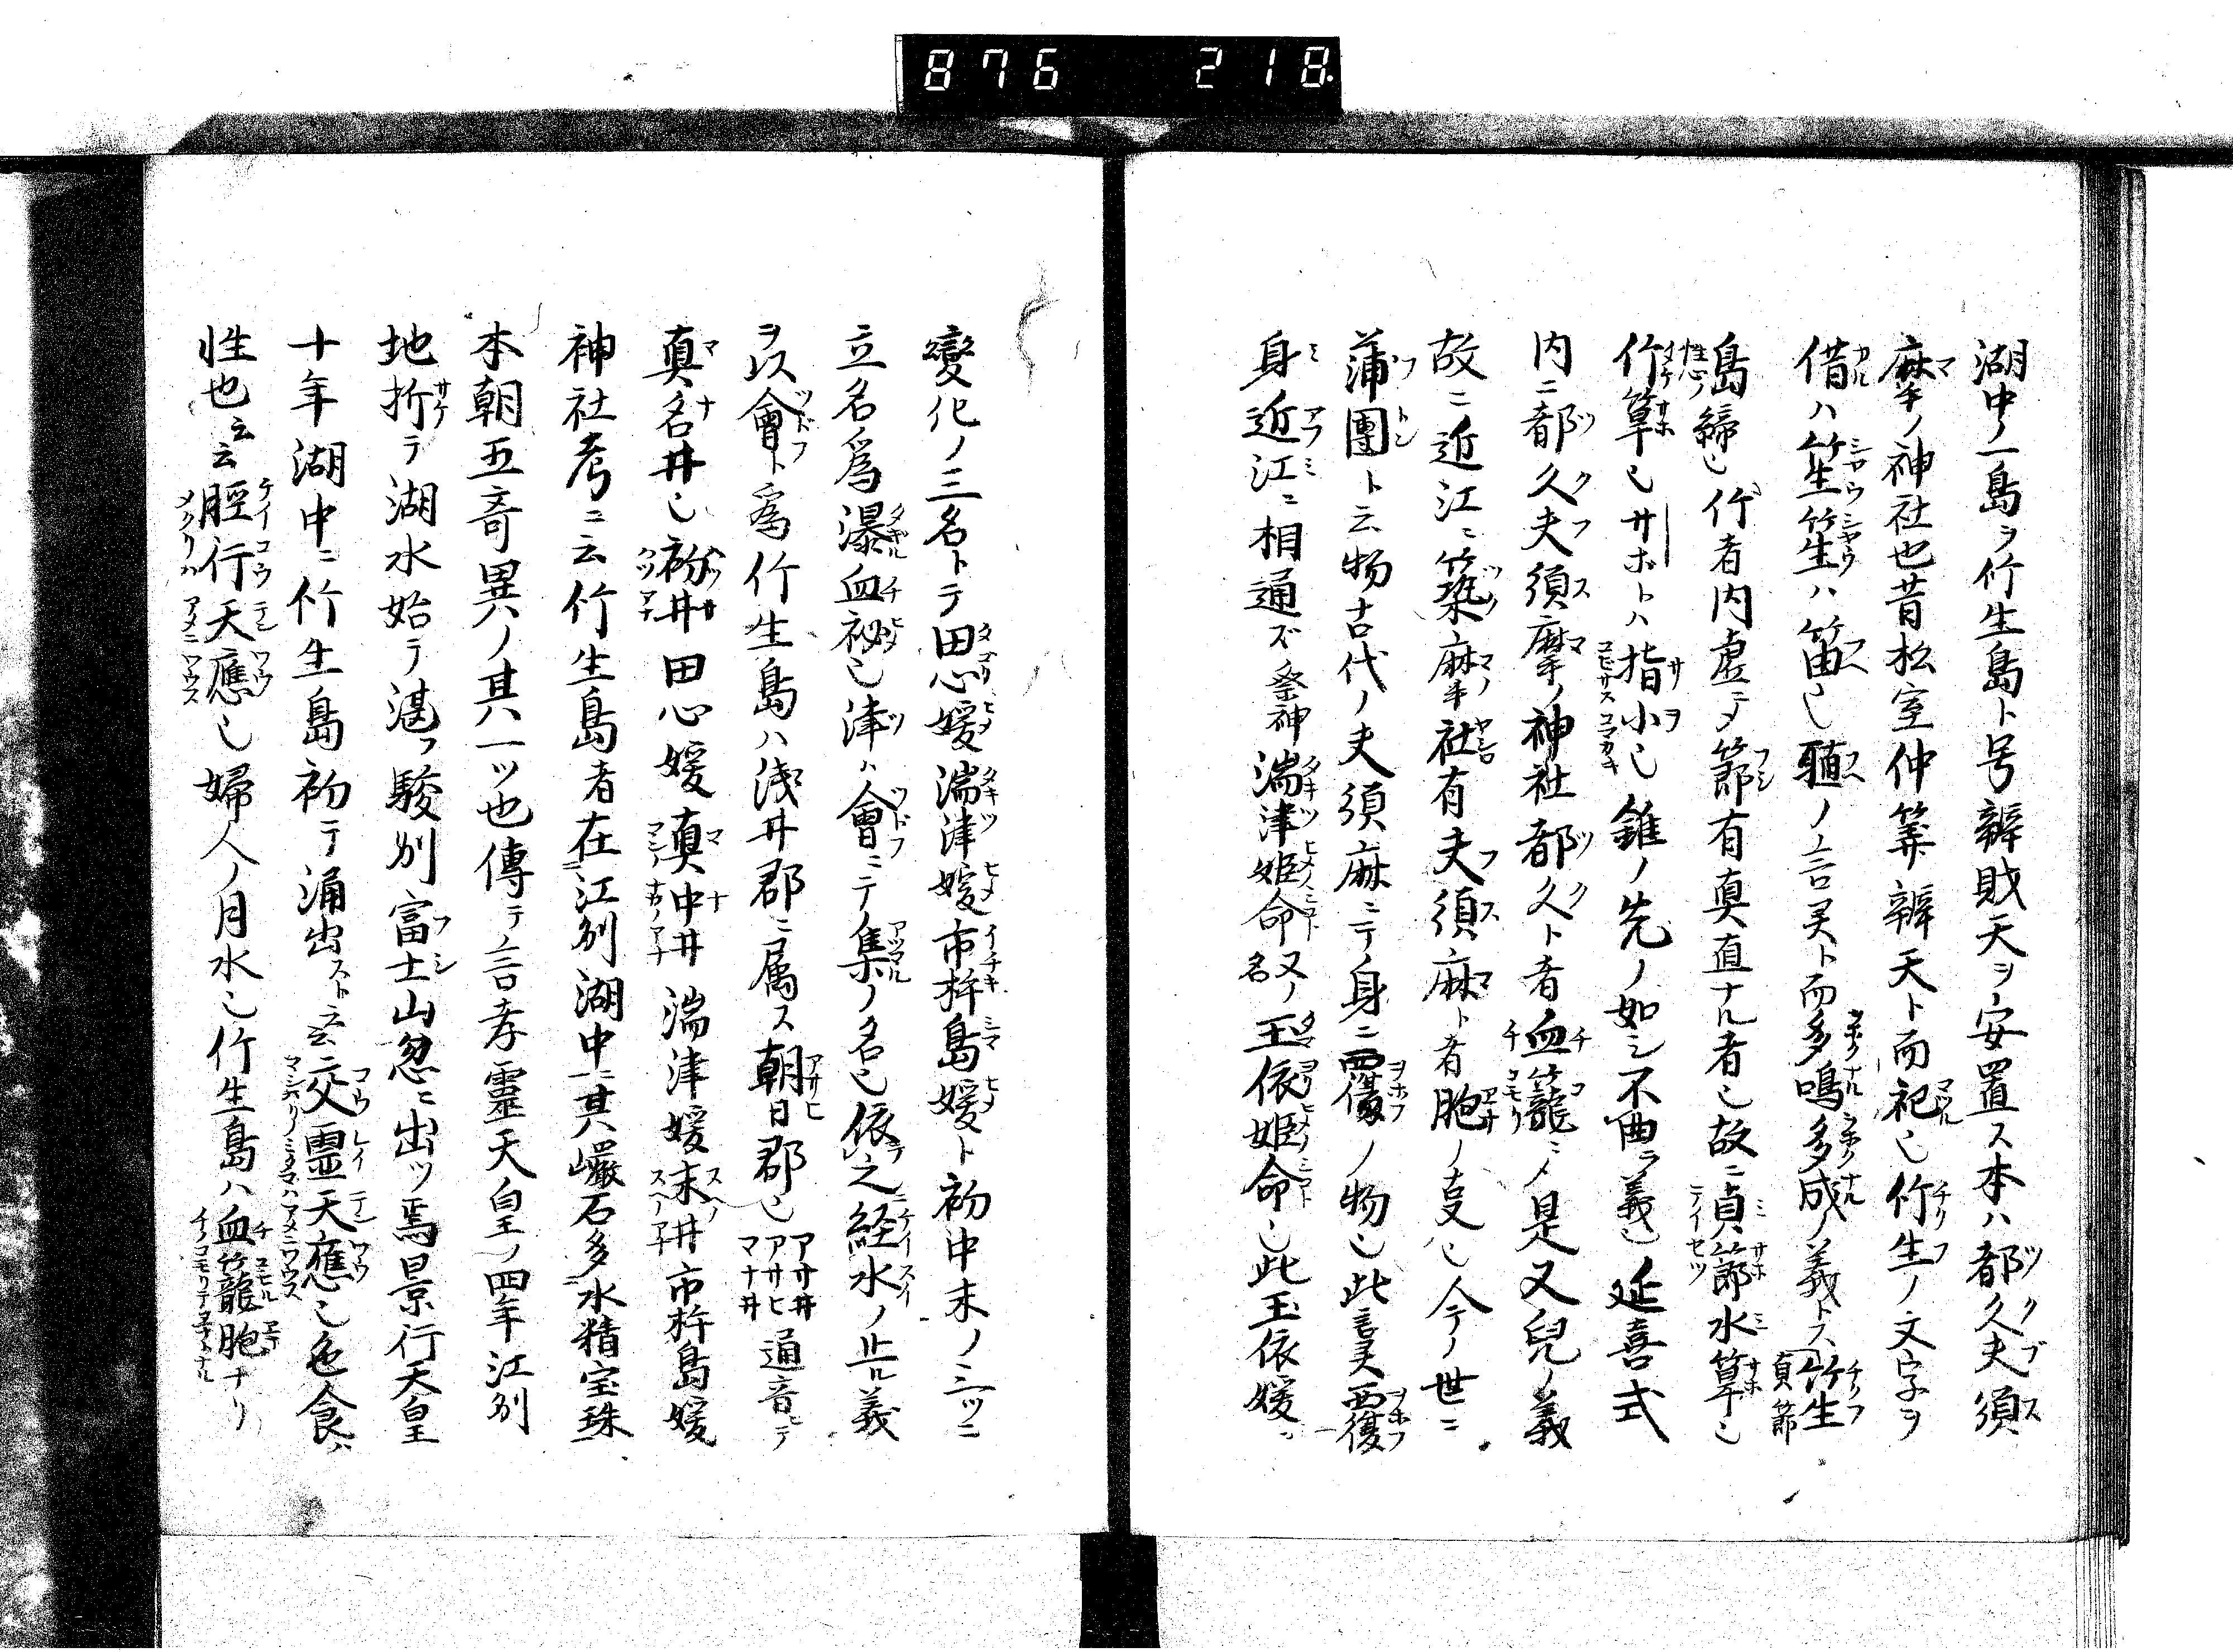 876 218
湖中ノ一島ヲ竹生島ト号辨財天ヲ安置ス本ハ都久夫須
摩ノ神社也昔松室仲筭辨天ト而祀也竹生ノ文字ヲ
借ハ笙笙ハ笛也聴ノ言灵ト而多鳴多成ノ義トス竹生
島歸也竹者内虚ニテ節有眞直ナル者也故ニ貞節水箪也
竹箪也サホトハ指小也錐ノ先ノ如シ不曲ラ義也延喜式
内ニ都久夫須摩ノ神社都久ト者血籠ニメ是又兒ノ義
故ニ近江ニ築摩社有夫須麻ト者胞ノ支也今ノ世ニ
蒲團ト云物古代ノ夫須麻ニテノ身ニ覆ノ物也此言灵覆
身近江ニ相通ズ祭神湍津姫命又ノ名玉依姫命也此玉依媛
變化ノ三名トテ田心媛湍津媛市杵島媛ト初中末ノ三ツニ
立名爲瀑血祕也津ハ會ニテ集ノ名也依之経水ノ止ル義
ヲ以會ト爲竹生島ハ浅井郡ニ属ス朝日郡也アサ井アサヒマナ井通音ニテ
真名井也初井田心媛真中井湍津媛末井市杵島媛
神社考ニ云竹生島者在江刕湖中其巖石多水精宝珠
本朝五竒異ノ其一ツ也傳テ言孝靈天皇ノ四年江刕
地折テ湖水始テ湛フ駿刕富士山忽ニ出ツ焉景行天皇
十年湖中ニ竹生島初テ涌出スト云云交霊天應也色食ハ
性也云云脛行天應也婦人ノ月水也竹生島ハ血籠胞ナリ